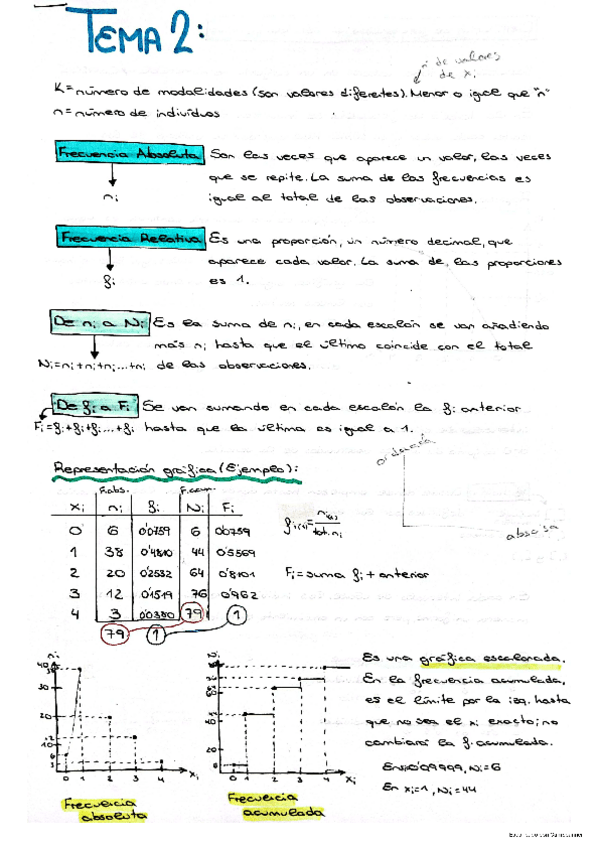 TEMA 2:
nº de valores
de xi
K = número de modalidades (son valores diferentes). Menor o igual que "n"
n = número de individuos
Frecuencia Absoluta Son las veces que aparece un valor, las veces
que se repite. La suma de las frecuencias es
ni igual al total de las observaciones.
Frecuencia Relativa Es una proporción, un número decimal, que
aparece cada valor. La suma de las proporciones
fi es 1.
De ni a Ni Es la suma de ni, en cada escalón se van añadiendo
más ni hasta que el último coincide con el total
Ni = ni + ni + ni ... + ni de las observaciones.
De fi a Fi Se van sumando en cada escalón la fi anterior
Fi = fi + fi + fi ... + fi hasta que la última es igual a 1.
ordenada
absisa
Representación gráfica (Ejemplo):
F.abs. F.acum.
xi ni fi Ni Fi
0 6 0'0759 6 0'0759
1 38 0'4810 44 0'5569
2 20 0'2532 64 0'8101
3 12 0'1519 76 0'962
4 3 0'0380 79 1
79 1
tot. ni
Fi = suma fi + anterior
ni
40
38
30
20
12
10
6
3
0 1 2 3 4 xi
Frecuencia
absoluta
Ni
60
40
20
0 1 2 3 4 xi
Frecuencia
acumulada
Es una gráfica escalonada.
En la frecuencia acumulada,
es el límite por la izq. hasta
que no sea el xi exacto; no
cambiará la f. acumulada.
Ni = 6
En xi = 1, Ni = 44